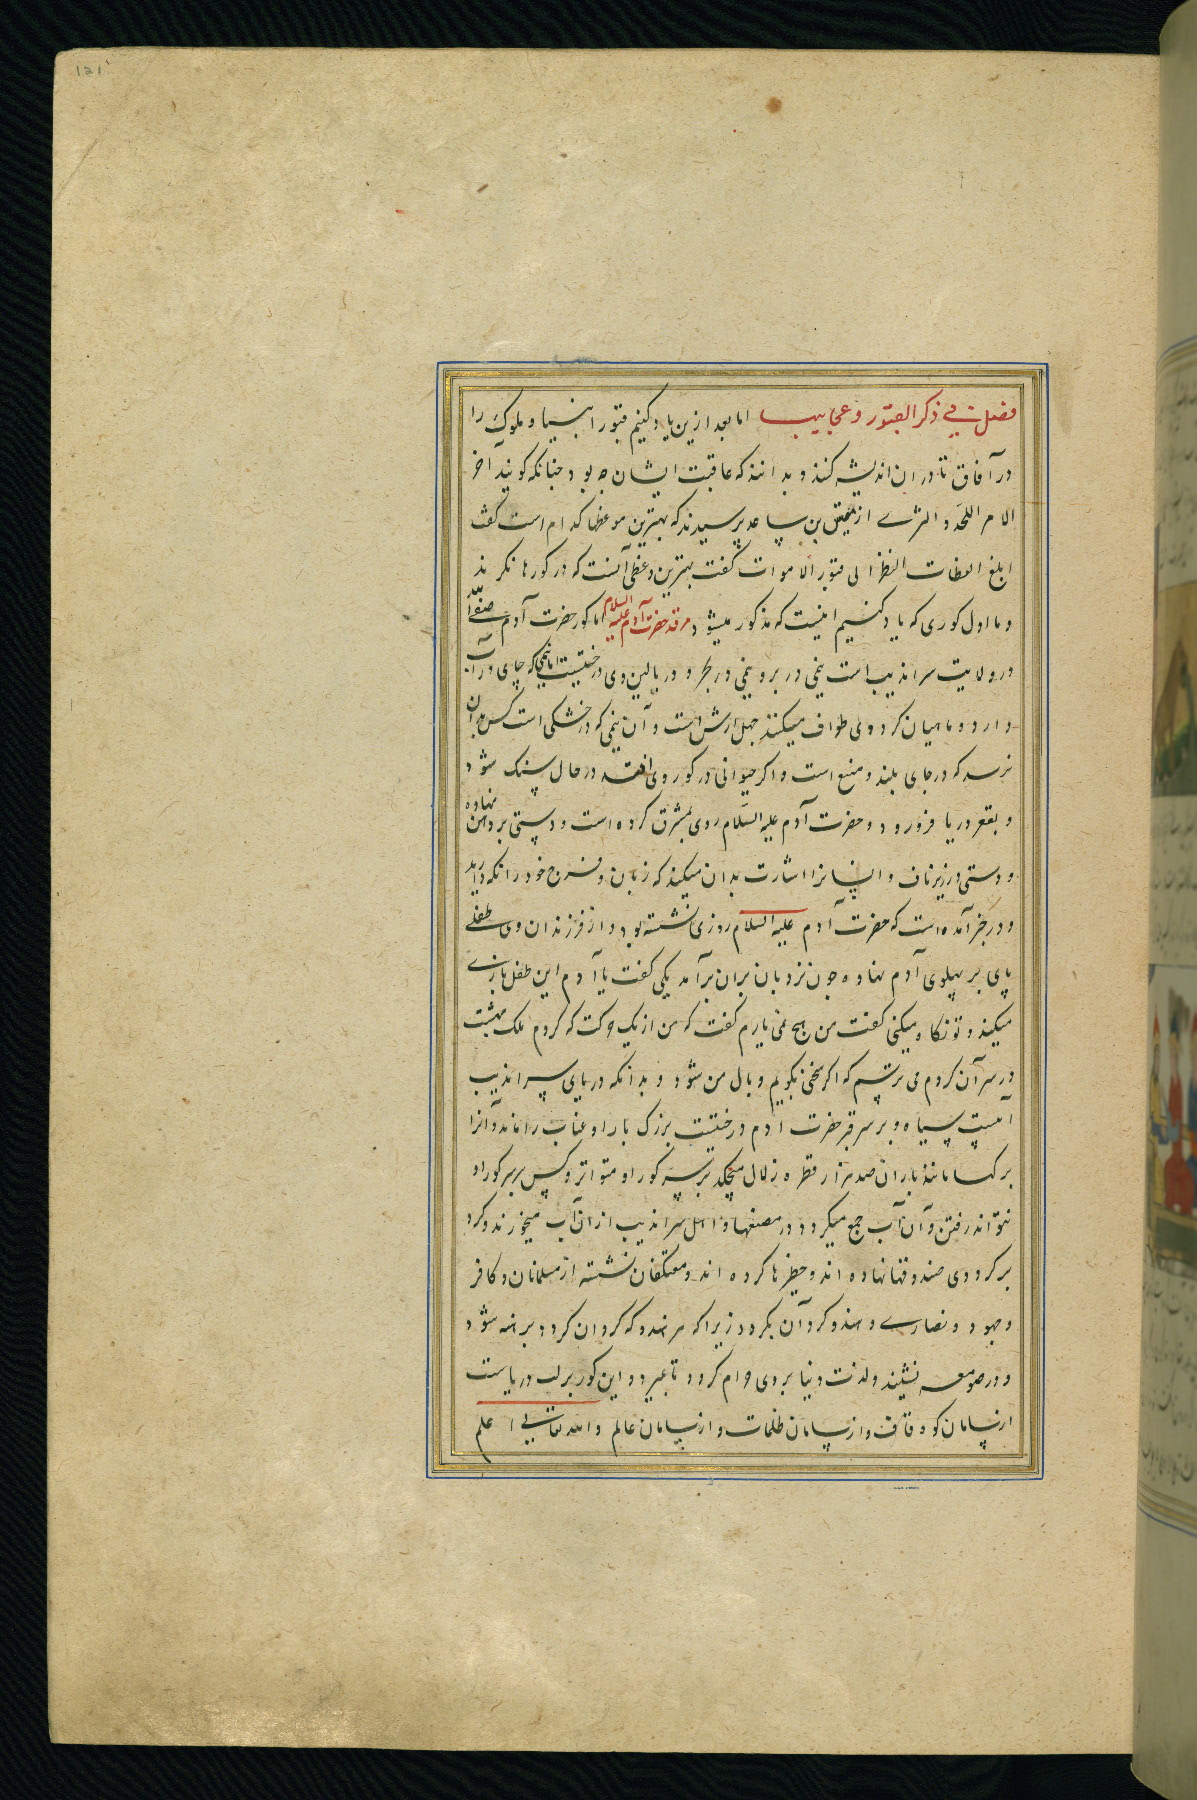 ١٢١
فصل في ذكر القبور وعجايبها اما بعد ازين ياد كنيم قبور انبيا و ملوك را
در آفاق تا در ان انديشه كنند و بدانند كه عاقبت ايشان چه بود چنانكه كويند آخر
الامر اللحد و الثرى از قس بن ساعده پرسيدند كه بهترين موعظها كدام است گفت
ابلغ العظات النظر الى قبور الاموات گفت بهترين وعظى آنست كه در كورها نكرند
و ما اول كورى كه ياد كنيم اينست كه مذكور ميشود مرقد حضرت آدم عليه السلام اما كور حضرت آدم صفى الله
در ولايت سرانديب است نيمى در بر و نيمى در بحر و در بالين وى درختيست اما نيمى كه جاى در آب
دارد و ماهيان كرد وى طواف ميكنند چهل ارش است و آن نيمى كه در خشكى است كس بدان
نرسد كه در جاى بلند و منيع است و اكر حيوانى در كور وى افتد در حال سنك شود
و بقعر دريا فرو رود و حضرت آدم عليه السلام روى بمشرق كرده است و دستى بر دهن نهاده
و دستى در زير ناف و ايشانرا اشارت بدان ميكند كه زبان و فرج خود را نكه داريد
و در خبر آمده است كه حضرت آدم عليه السلام روزى نشسته بود و از فرزندان وى طفلى
پاى بر پهلوى آدم نهاده چون نردبان بران برآمد يكى گفت يا آدم اين طفل بازى
ميكند و تو نكاه ميكنى گفت من هيچ نمى يارم گفت كه من از يك حركت كه كردم ملك بهشت
در سر آن كردم مى ترسم كه اكر سخنى بگويم وبال من شود و بدانكه درياى سرانديب
آبيست سياه و بر سر قبر حضرت ادم درختيست بزرك بار او عناب را ماند و آنرا
بركها مانند باران صد هزار قطره زلال ميچكد بر سر كور او متواتر و كس بر سر كور او
نتواند رفتن و آن آب جمع ميكردد در مصنعها و اهل سرانديب ازان آب ميخورند و كرد
بر كرد وى صندوقها نهاده اند و حظيرها كرده اند و معتكفان نشسته از مسلمانان و كافر
و جهود و نصارى و هندو كرد آن بكردد زيرا كه هر هندو كه كرد ان كردد برهنه شود
و در صومعه نشيند و لذت دنيا بر وى حرام كردد تا بميرد و اين كور بر لب درياست
از بيابان كوه قاف و از بيابان ظلمات و از بيابان عالم و الله تعالى اعلم